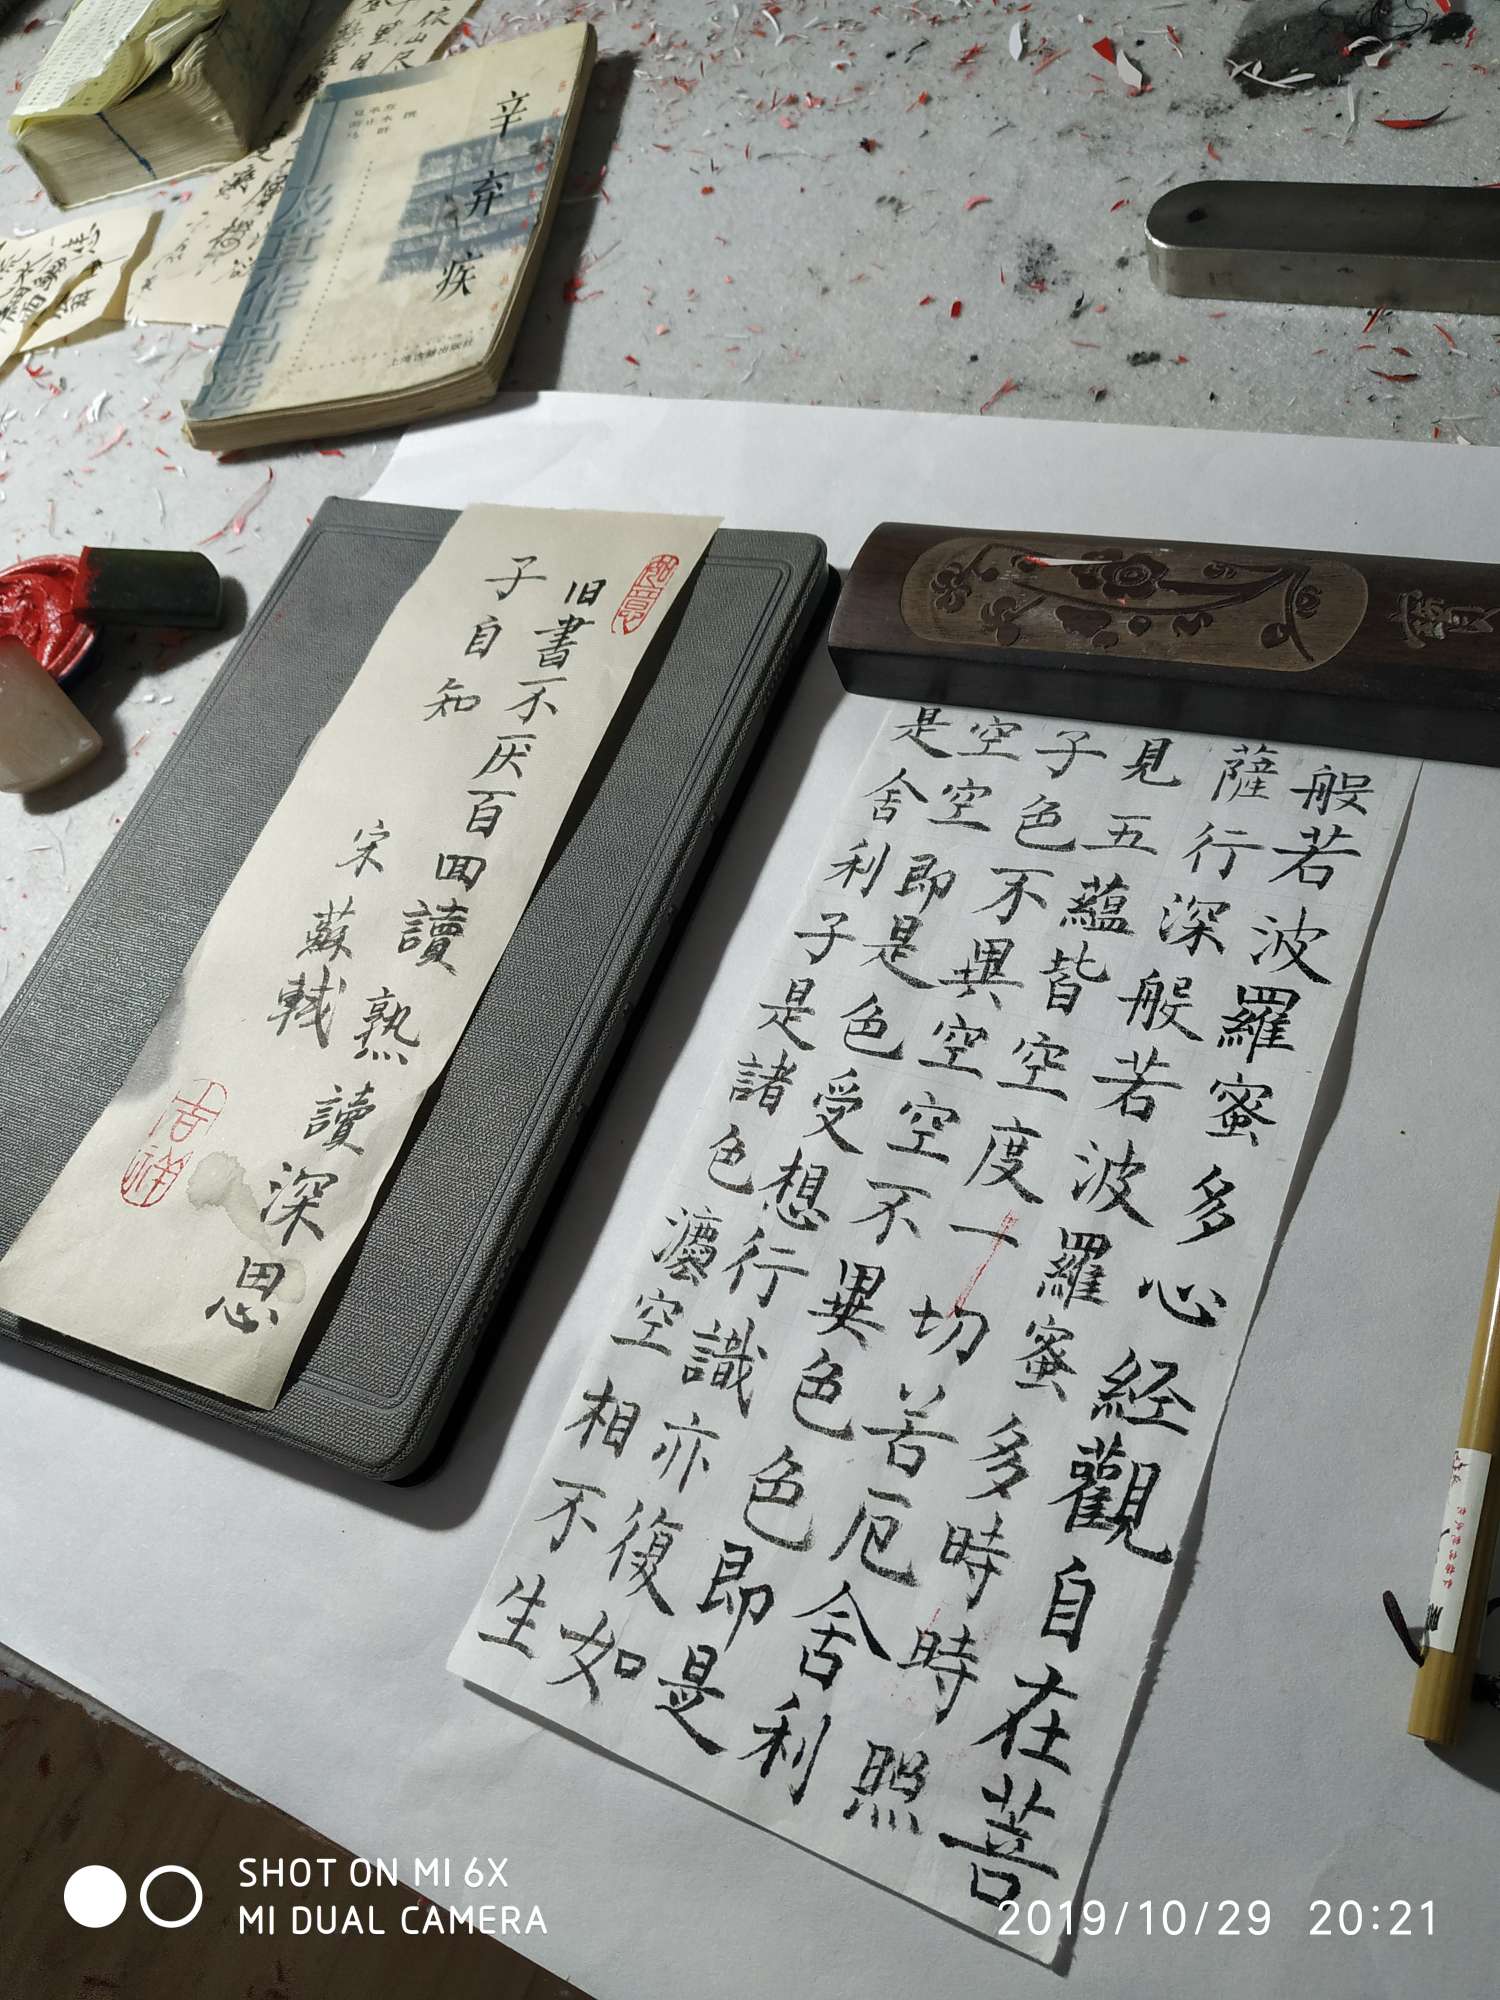 辛弃疾
上海古籍出版社
如意
旧書不厌百囬讀熟讀深思
子自知
宋蘇軾
吉祥
般若波羅蜜多心経觀自在菩
薩行深般若波羅蜜多時時照
見五蘊皆空度一切苦厄舍利
子色不異空空不異色色即是
空空即是色受想行識亦復如
是舍利子是諸色灋空相不生
寶
SHOT ON MI 6X
MI DUAL CAMERA
2019/10/29 20:21